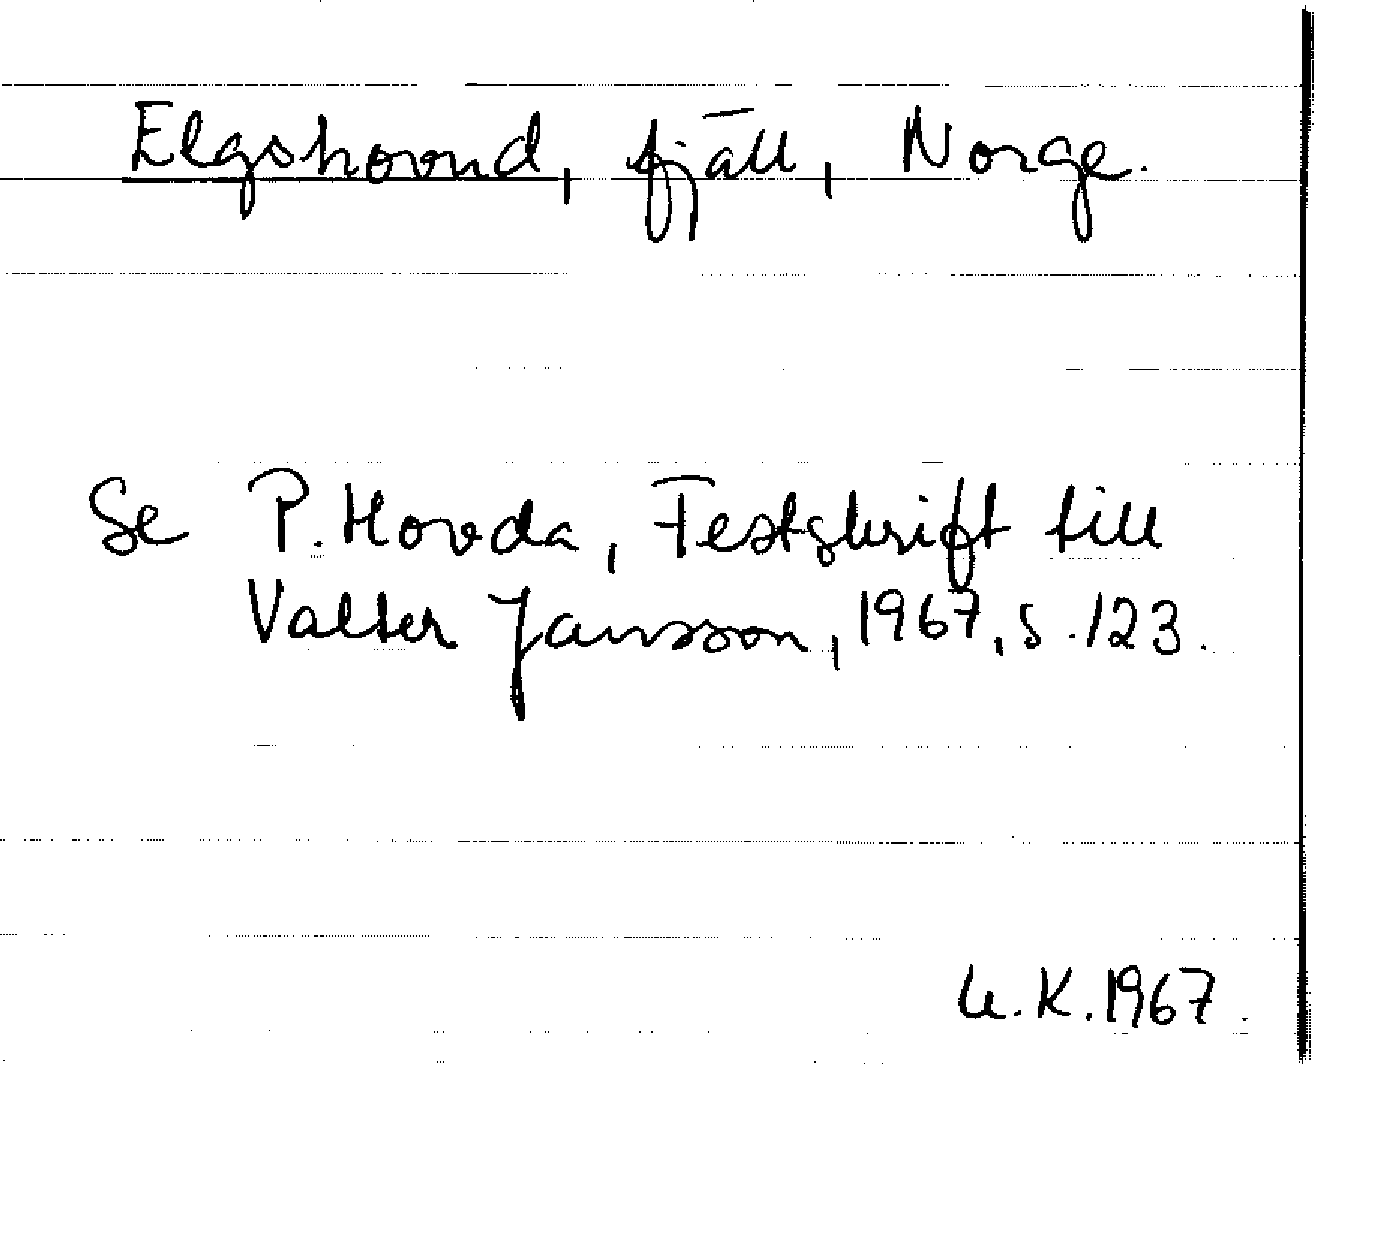 Elgshovud, fjäll, Norge.
Se P. Hovda, Festskrift till
Valter Jansson, 1967, s. 123.
U.K. 1967.